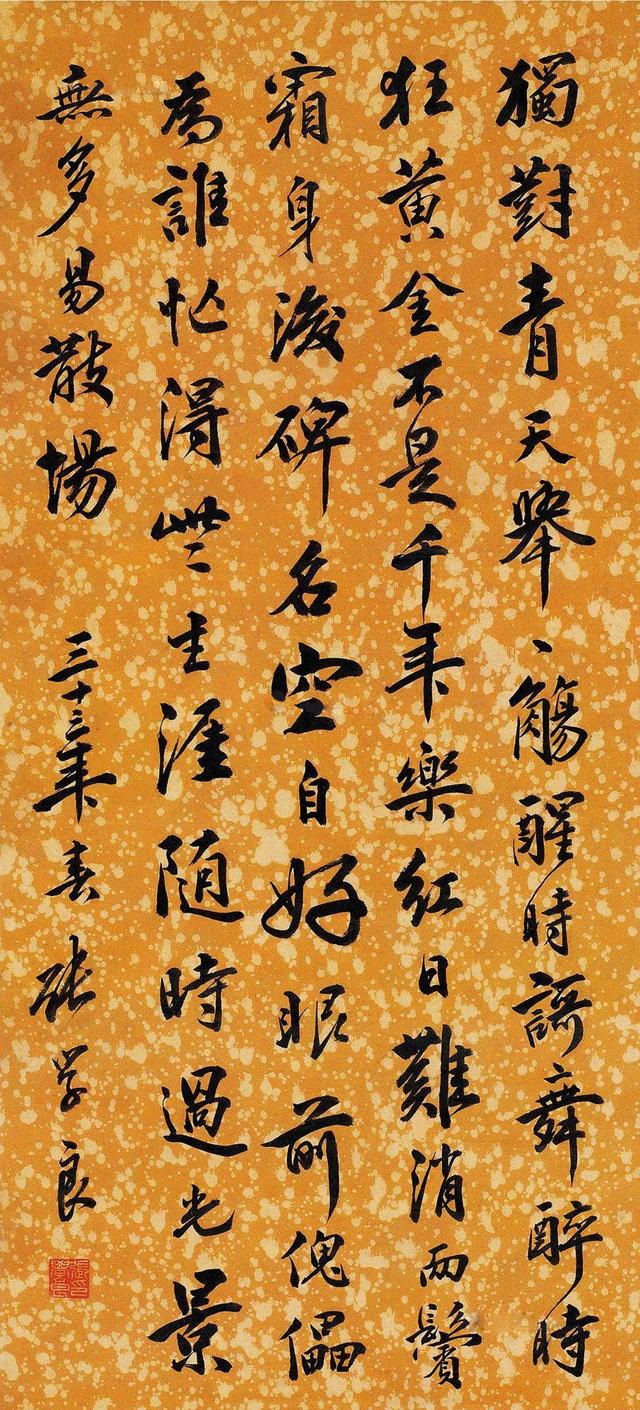 獨對青天舉一觴醒時謌舞醉時
狂黃金不是千年樂紅日難消兩鬢
霜身後碑名空自好眼前傀儡
為誰忙得些生涯随時過光景
無多易散場 三十三年春 張学良